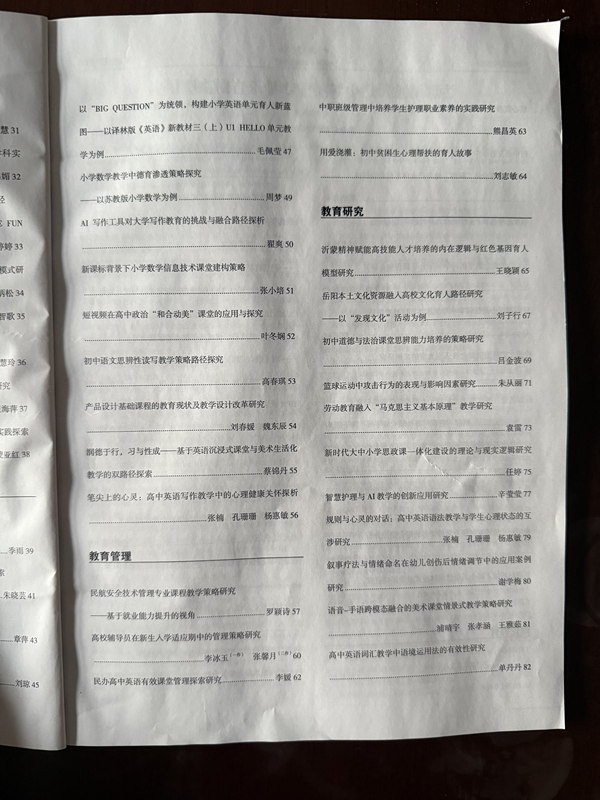 慧 31
学科实
媚 32
径
E FUN
婷婷 33
模式研
炳松 34
智歌 35
慧玲 36
研究
海萍 37
实践探索
亚红 38
季雨 39
索
朱晓芸 41
章萍 43
刘琼 45
以“BIG QUESTION”为统领，构建小学英语单元育人新蓝
图——以译林版《英语》新教材三（上）U1 HELLO 单元教
学为例 毛佩莹 47
小学数学教学中德育渗透策略探究
——以苏教版小学数学为例 周梦 49
AI 写作工具对大学写作教育的挑战与融合路径探析
翟爽 50
新课标背景下小学数学信息技术课堂建构策略
张小培 51
短视频在高中政治“和合动美”课堂的应用与探究
叶冬娴 52
初中语文思辨性读写教学策略路径探究
高春琪 53
产品设计基础课程的教育现状及教学设计改革研究
刘春媛 魏东辰 54
润德于行，习与性成——基于英语沉浸式课堂与美术生活化
教学的双路径探索 蔡锦丹 55
笔尖上的心灵：高中英语写作教学中的心理健康关怀探析
张楠 孔珊珊 杨惠敏 56
教育管理
民航安全技术管理专业课程教学策略研究
——基于就业能力提升的视角 罗颖诗 57
高校辅导员在新生入学适应期中的管理策略研究
李冰玉（一作） 张馨月（二作）60
民办高中英语有效课堂管理探索研究 李媛 62
中职班级管理中培养学生护理职业素养的实践研究
熊昌英 63
用爱浇灌：初中贫困生心理帮扶的育人故事
刘志敏 64
教育研究
沂蒙精神赋能高技能人才培养的内在逻辑与红色基因育人
模型研究 王晓颖 65
岳阳本土文化资源融入高校文化育人路径研究
——以“发现文化”活动为例 刘子行 67
初中道德与法治课堂思辨能力培养的策略研究
吕金波 69
篮球运动中攻击行为的表现与影响因素研究 朱从丽 71
劳动教育融入“马克思主义基本原理”教学研究
袁雷 73
新时代大中小学思政课一体化建设的理论与现实逻辑研究
任婷 75
智慧护理与 AI 教学的创新应用研究 辛莹莹 77
规则与心灵的对话：高中英语语法教学与学生心理状态的互
涉研究 张楠 孔珊珊 杨惠敏 79
叙事疗法与情绪命名在幼儿创伤后情绪调节中的应用案例
研究 谢学梅 80
语音-手语跨模态融合的美术课堂情景式教学策略研究
浦啃宇 张孝涵 王雅茹 81
高中英语词汇教学中语境运用法的有效性研究
单丹丹 82